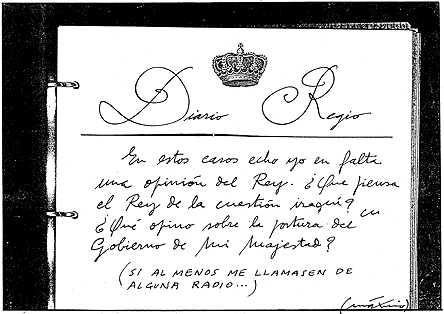 Diario Regio
En estos casos echo yo en falta
una opinión del Rey. ¿Qué piensa
el Rey de la cuestión iraquí?
¿Qué opino sobre la postura del
Gobierno de Mi Majestad?
(SI AL MENOS ME LLAMASEN DE
ALGUNA RADIO...)
(máximo)